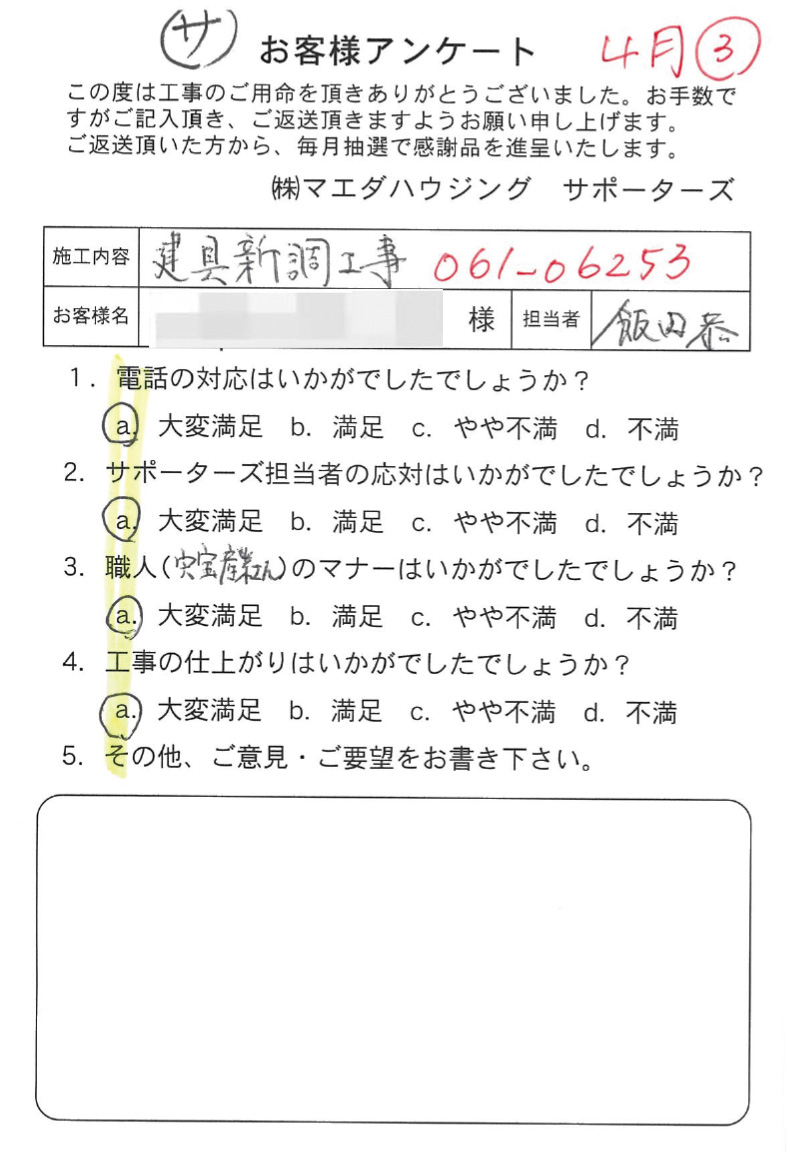 サ お客様アンケート 4月③
この度は工事のご用命を頂きありがとうございました。お手数で
すがご記入頂き、ご返送頂きますようお願い申し上げます。
ご返送頂いた方から、毎月抽選で感謝品を進呈いたします。
㈱マエダハウジング サポーターズ
施工内容 建具新調工事 061-06253
お客様名 様 担当者 飯田恭
1. 電話の対応はいかがでしたでしょうか?
a. 大変満足 b. 満足 c. やや不満 d. 不満
2. サポーターズ担当者の応対はいかがでしたでしょうか?
a. 大変満足 b. 満足 c. やや不満 d. 不満
3. 職人(宍宝産業さん)のマナーはいかがでしたでしょうか?
a. 大変満足 b. 満足 c. やや不満 d. 不満
4. 工事の仕上がりはいかがでしたでしょうか?
a. 大変満足 b. 満足 c. やや不満 d. 不満
5. その他、ご意見・ご要望をお書き下さい。